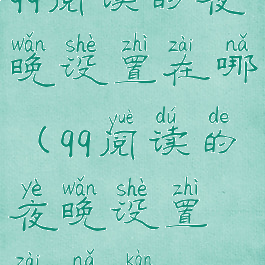 99阅读的夜
wǎn shè zhì zài nǎ
晚设置在哪
yuè dú de
(99阅读的
yè wǎn shè zhì
夜晚设置
zài nǎ kàn